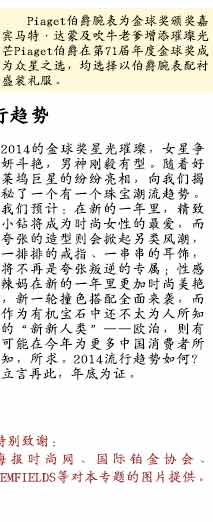 Piaget伯爵腕表为金球奖颁奖嘉
宾马特·达蒙及吹牛老爹增添璀璨光
芒Piaget伯爵在第71届年度金球奖成
为众星之选，均选择以伯爵腕表配衬
盛装礼服。
行趋势
2014的金球奖星光璀璨，女星争
妍斗艳，男神刚毅有型。随着好
莱坞巨星的纷纷亮相，向我们揭
秘了一个有一个珠宝潮流趋势。
我们预计：在新的一年里，精致
小钻将成为时尚女性的最爱，而
夸张的造型则会掀起另类风潮，
一排排的戒指、一串串的耳饰，
将不再是夸张叛逆的专属；性感
辣妈在新的一年里更加时尚美艳
，新一轮撞色搭配全面来袭，而
作为有机宝石中还不太为人所知
的“新新人类”——欧泊，则有
可能在今年为更多中国消费者所
知，所求。2014流行趋势如何？
立言再此，年底为证。
特别致谢：
海报时尚网、国际铂金协会、
EMFIELDS等对本专题的图片提供。